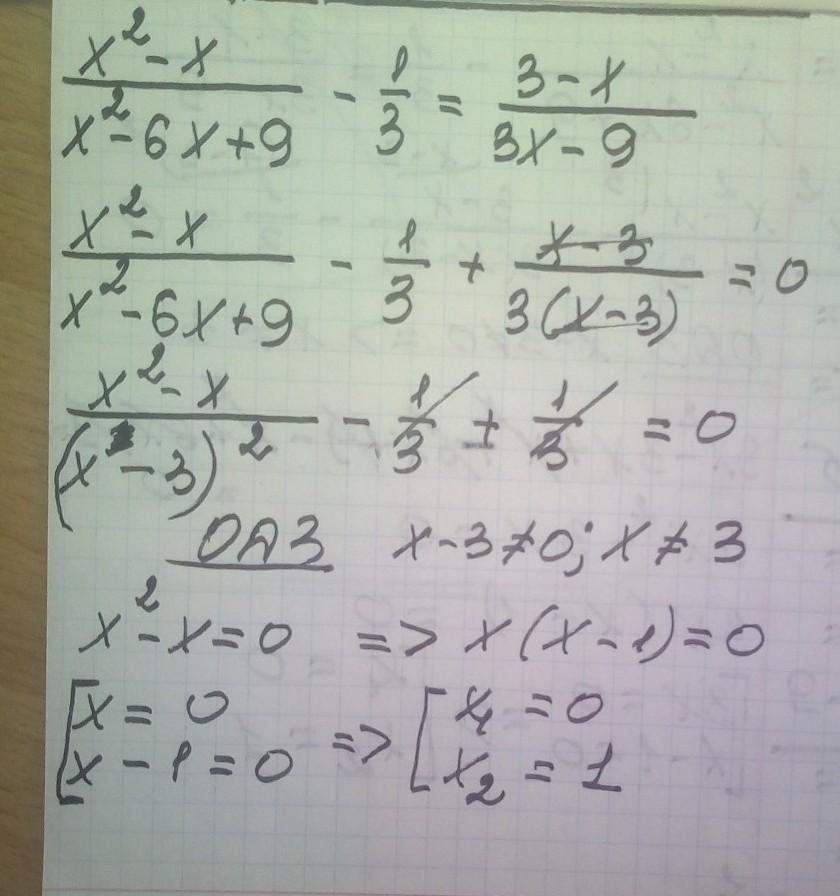 x² - x / x² - 6x + 9 - 1/3 = 3 - x / 3x - 9
x² - x / x² - 6x + 9 - 1/3 + x - 3 / 3(x - 3) = 0
x² - x / (x - 3)² - 1/3 + 1/3 = 0
ОДЗ x - 3 ≠ 0; x ≠ 3
x² - x = 0 => x(x - 1) = 0
[x = 0 => [x₁ = 0
x - 1 = 0 x₂ = 1